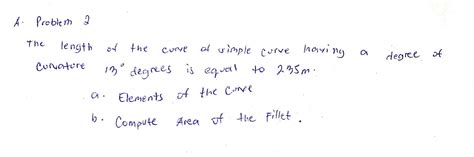 A. Problem 2
The length of the curve of simple curve having a degree of
curvature 13° degrees is equal to 235m.
a. Elements of the Curve
b. Compute Area of the Fillet.